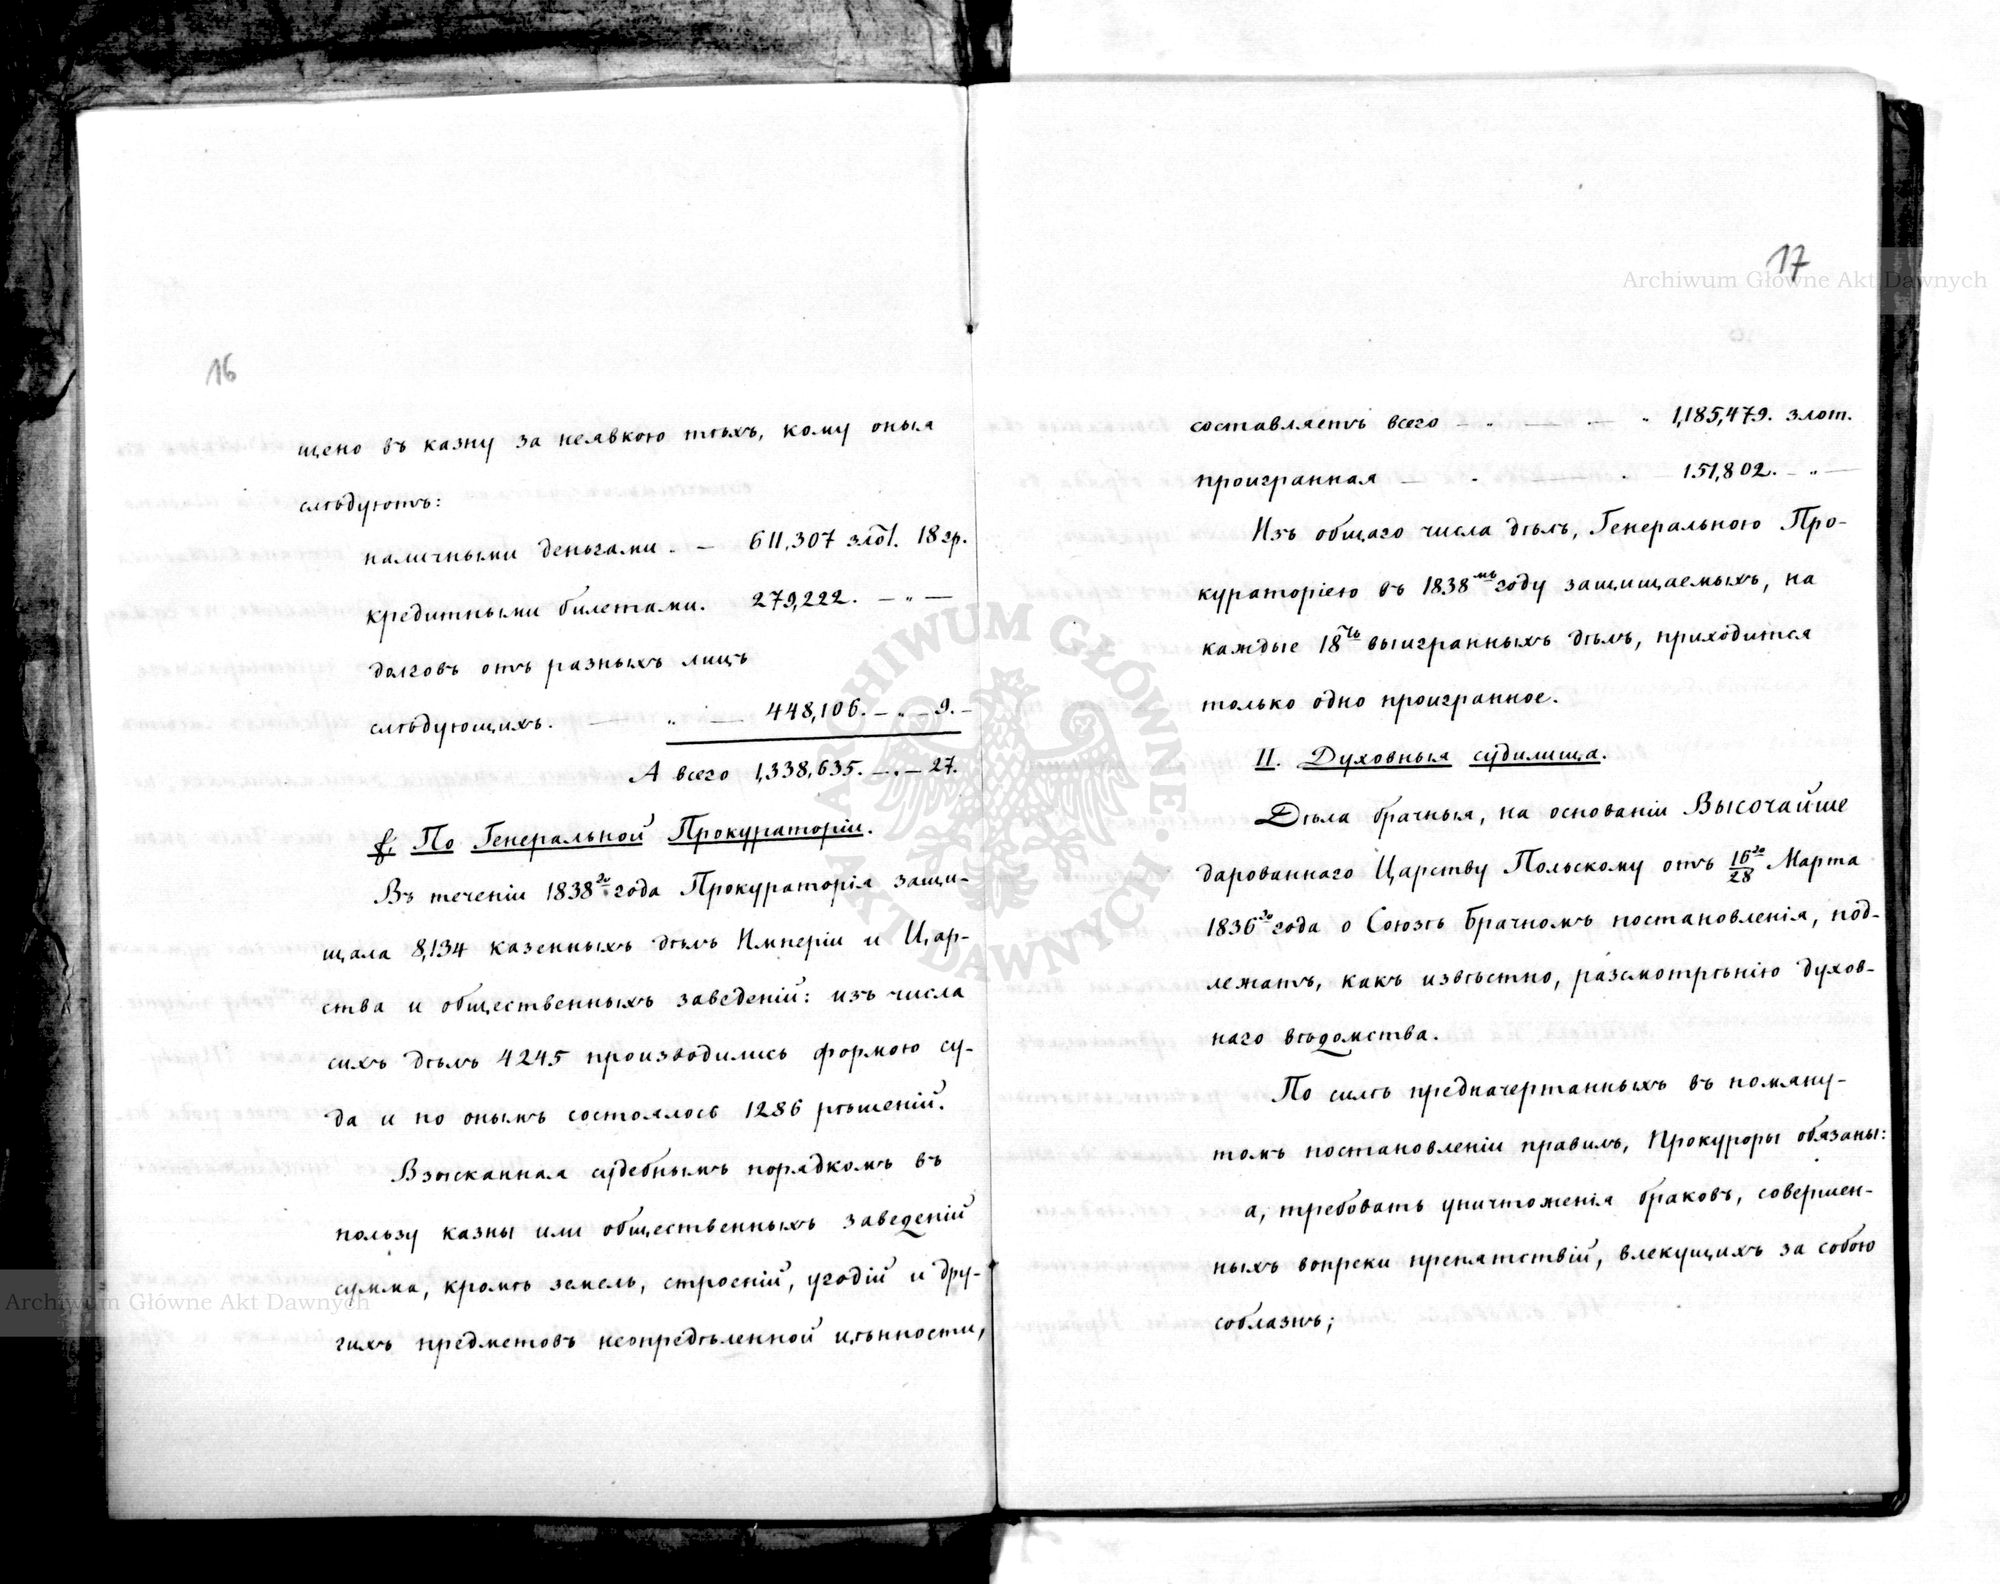 16
щено въ казну за неявкою тѣхъ, кому оныя
слѣдуютъ:
наличными деньгами. — 611,307 злот. 18 гр.
кредитными билетами. 279,222. — „ —
долговъ отъ разныхъ лицъ
слѣдующихъ. — „ — 448,106. — „ — 9. —
А всего 1,338,635. — „ — 27.
f, По Генеральной Прокураторіи.
Въ теченіи 1838го года Прокураторія защи-
щала 8,134 казенныхъ дѣлъ Имперіи и Цар-
ства и общественныхъ заведеній: изъ числа
сихъ дѣлъ 4245 производились формою су-
да и по онымъ состоялось 1286 рѣшеній.
Взысканная судебнымъ порядкомъ въ
пользу казны или общественныхъ заведеній
сумма, кромѣ земель, строеній, угодій и дру-
гихъ предметовъ неопредѣленной цѣнности,
17
составляетъ всего — „ — — „ 1,185,479. злот.
проигранная — „ — „ — 151,802. — „ —
Изъ общаго числа дѣлъ, Генеральною Про-
кураторіею въ 1838мъ году защищаемыхъ, на
каждые 18ть выигранныхъ дѣлъ, приходится
только одно проигранное.
II. Духовныя судилища.
Дѣла брачныя, на основаніи Высочайше
дарованнаго Царству Польскому отъ 16/28го Марта
1836го года о Союзѣ Брачномъ постановленія, под-
лежатъ, какъ извѣстно, разсмотрѣнію духов-
наго вѣдомства.
По силѣ предначертанныхъ въ помяну-
томъ постановленіи правилъ, Прокуроры обязаны:
а, требовать уничтоженія браковъ, совершен-
ныхъ вопреки препятствій, влекущихъ за собою
соблазнъ;
Archiwum Główne Akt Dawnych
Archiwum Główne Akt Dawnych
ARCHIWUM GŁÓWNE AKT DAWNYCH